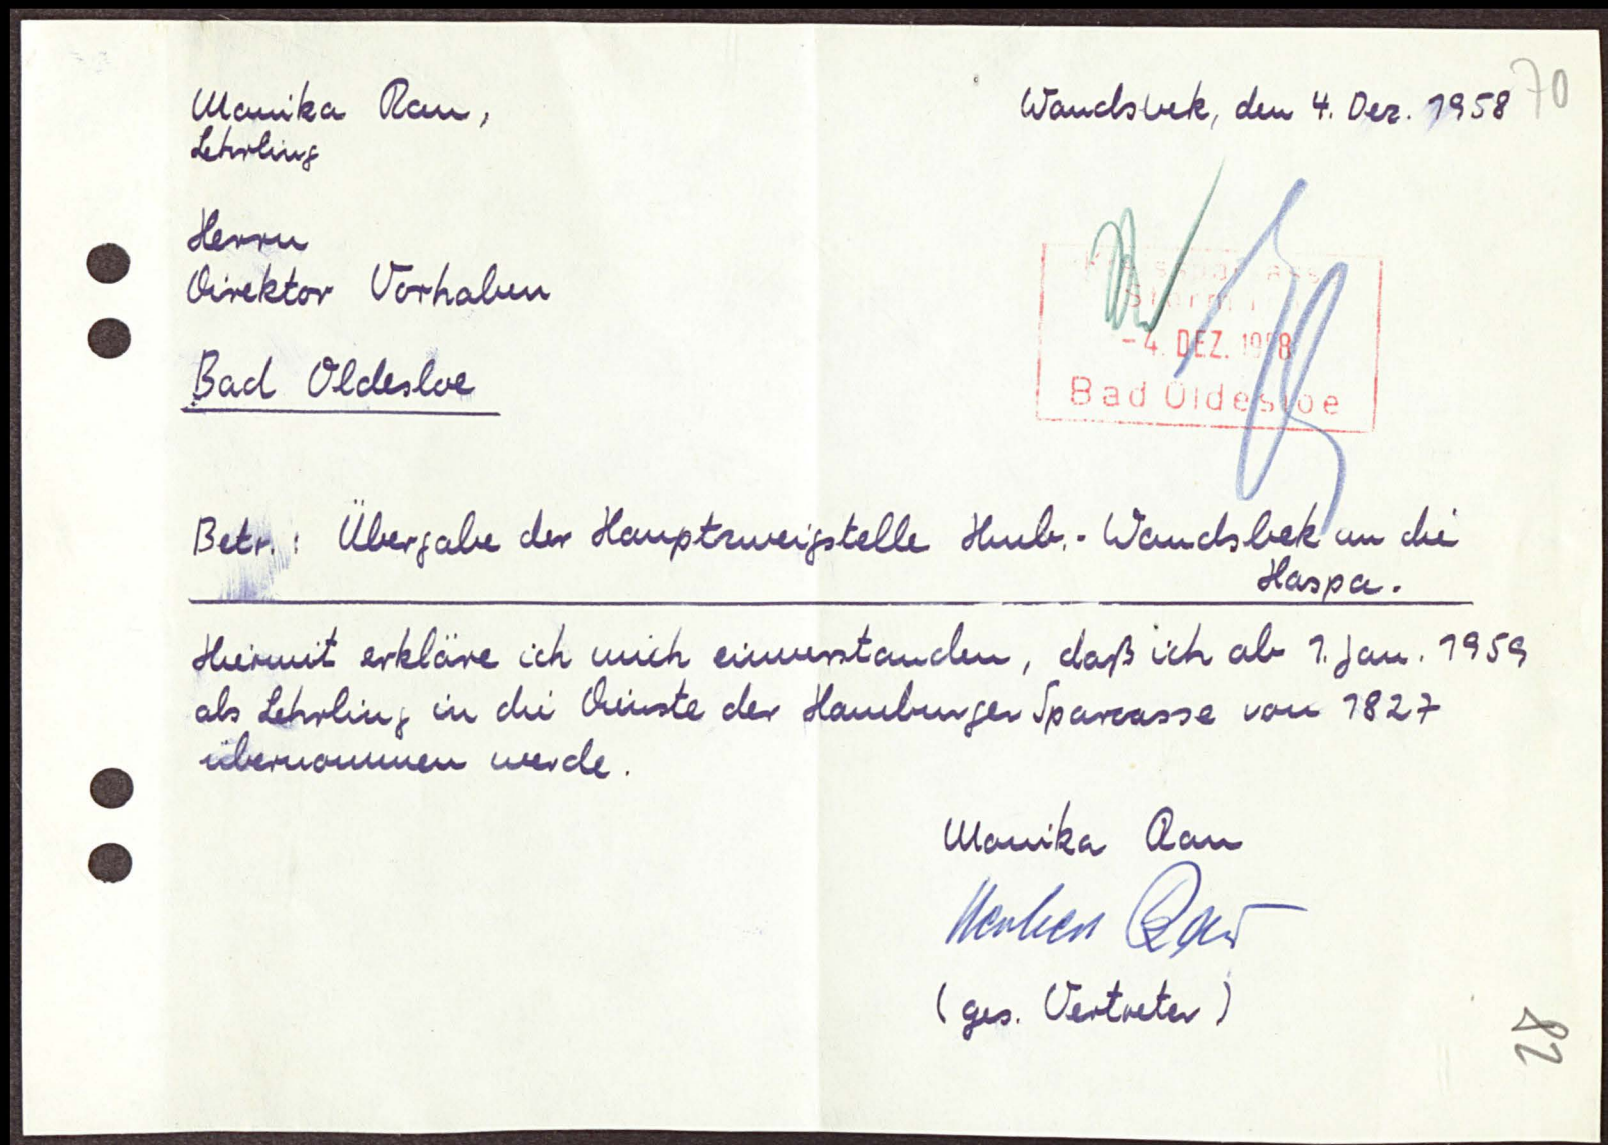 70
Monika Rau,
Wandsbek, den 4. Dez. 1958
Lehrling
Herrn
Direktor Vorhaben
Bad Oldesloe
Kreissparkasse
Stormarn
-4. DEZ. 1958
Bad Oldesloe
Betr.: Übergabe der Hauptzweigstelle Hmb.-Wandsbek an die
Haspa.
Hiermit erkläre ich mich einverstanden, daß ich ab 1. Jan. 1959
als Lehrling in die Dienste der Hamburger Sparcasse von 1827
übernommen werde.
Monika Rau
Rau
(ges. Vertreter)
82